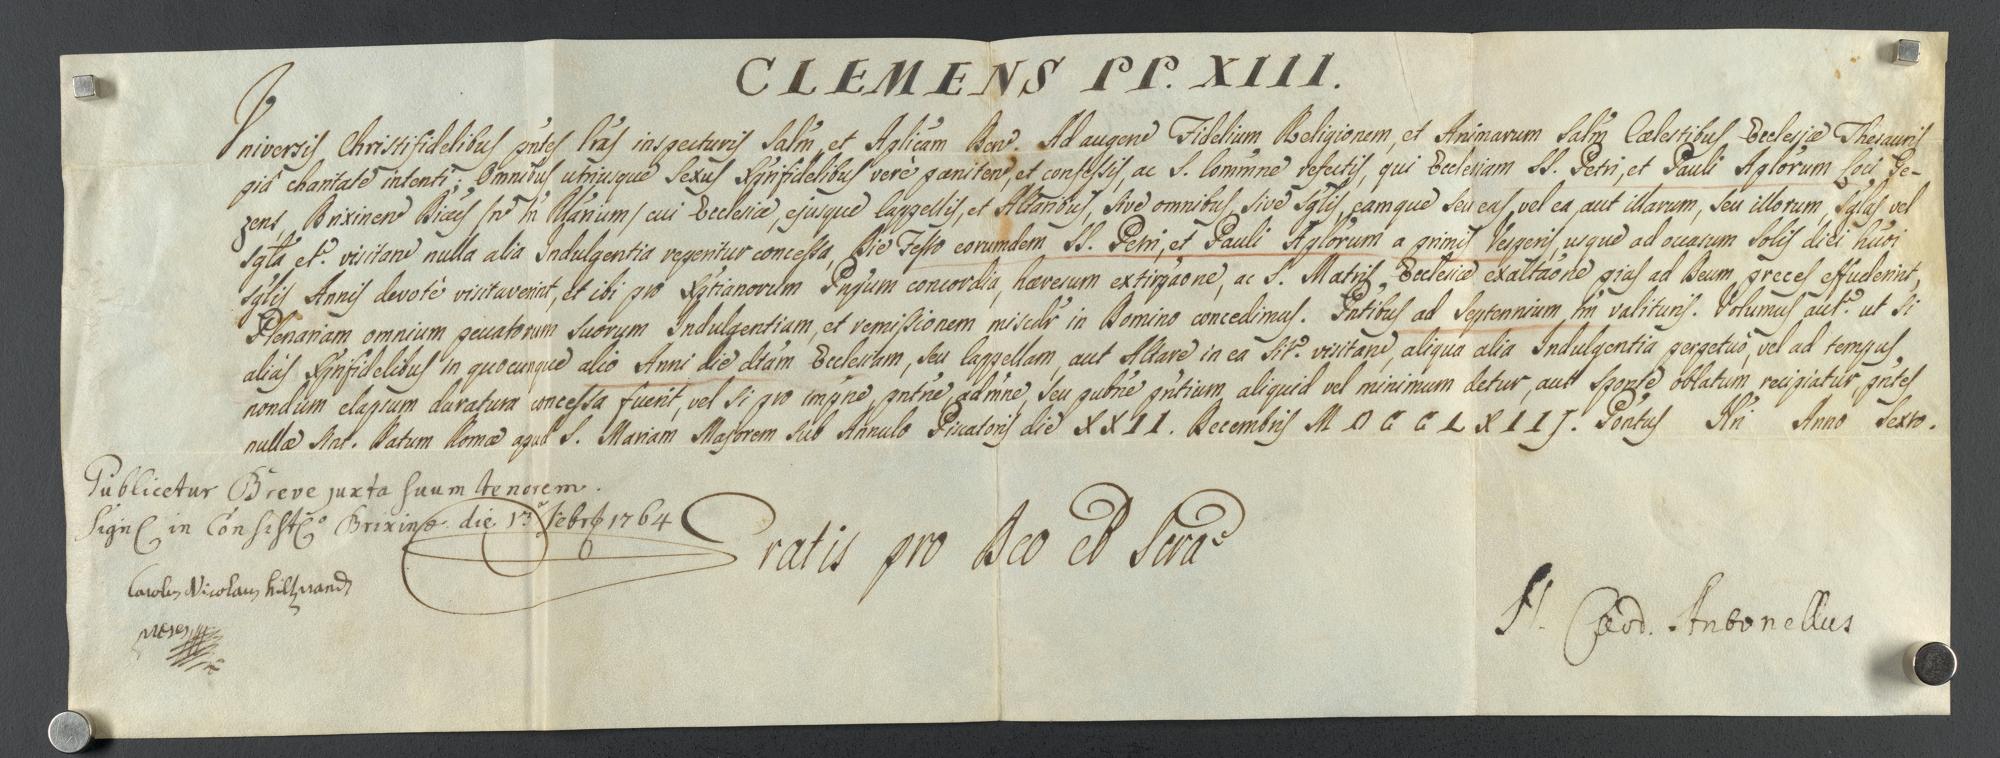 CLEMENS PP. XIII.
Universis Christifidelibus pntes Lras inspecturis Salm, et Aplicam Bene. Ad augene Fidelium Religionem, et Animarum Salm Cælestibus Ecclesiæ Thesauris
pia charitate intenti; Omnibus utriusque Sexus Xpnfidelibus verè pæniten, et confessis, ac S. Commne refectis, qui Ecclesiam SS. Petri, et Pauli Aplorum Loci Pe-
zens Brixinen Diæcis cui Ecclesiæ, ejusque Cappellis, et Altaribus, sive omnibus, sive Sglis, eamque seu eas, vel ea, aut illarum, seu illorum, Sglas vel
Sgla etc. visitane nulla alia Indulgentia reperitur concessa, Die Festo eorumdem SS. Petri, et Pauli Aplorum a primis Vesperis, usque ad occasum Solis diei hmoi
Sglis Annis devotè visitaverint, et ibi pro Xptianorum Pnpum concordia, hæresum extirpaone, ac S. Matris Ecclesiæ exaltaone pias ad Deum preces effuderint,
Plenariam omnium peccatorum suorum Indulgentiam, et remissionem miscdr in Domino concedimus. Pntibus ad Septennium tm valituris. Volumus aut. ut si
alias Xpnfidelibus in quocunque alio Anni die dtam Ecclesiam, seu Cappellam, aut Altare in ea sit. visitane, aliqua alia Indulgentia perpetuò, vel ad tempus
nondum elapsum duratura concessa fuerit, vel si pro impne, pntne, admne, seu pubne pntium, aliquid vel minimum detur, aut sponte oblatum recipiatur, pntes
nullæ sint. Datum Romæ apud S. Mariam Majorem sub Annulo Piscatoris die XXII. Decembris MDCCLXIIJ. Pontus Nri Anno Sexto.
Publicetur Breve juxta suum tenorem.
Sign in Consisto Brixinæ die 13 Febr 1764
Gratis pro Deo et Scra
Carolus Nicolaus
N. Card. Antonellus